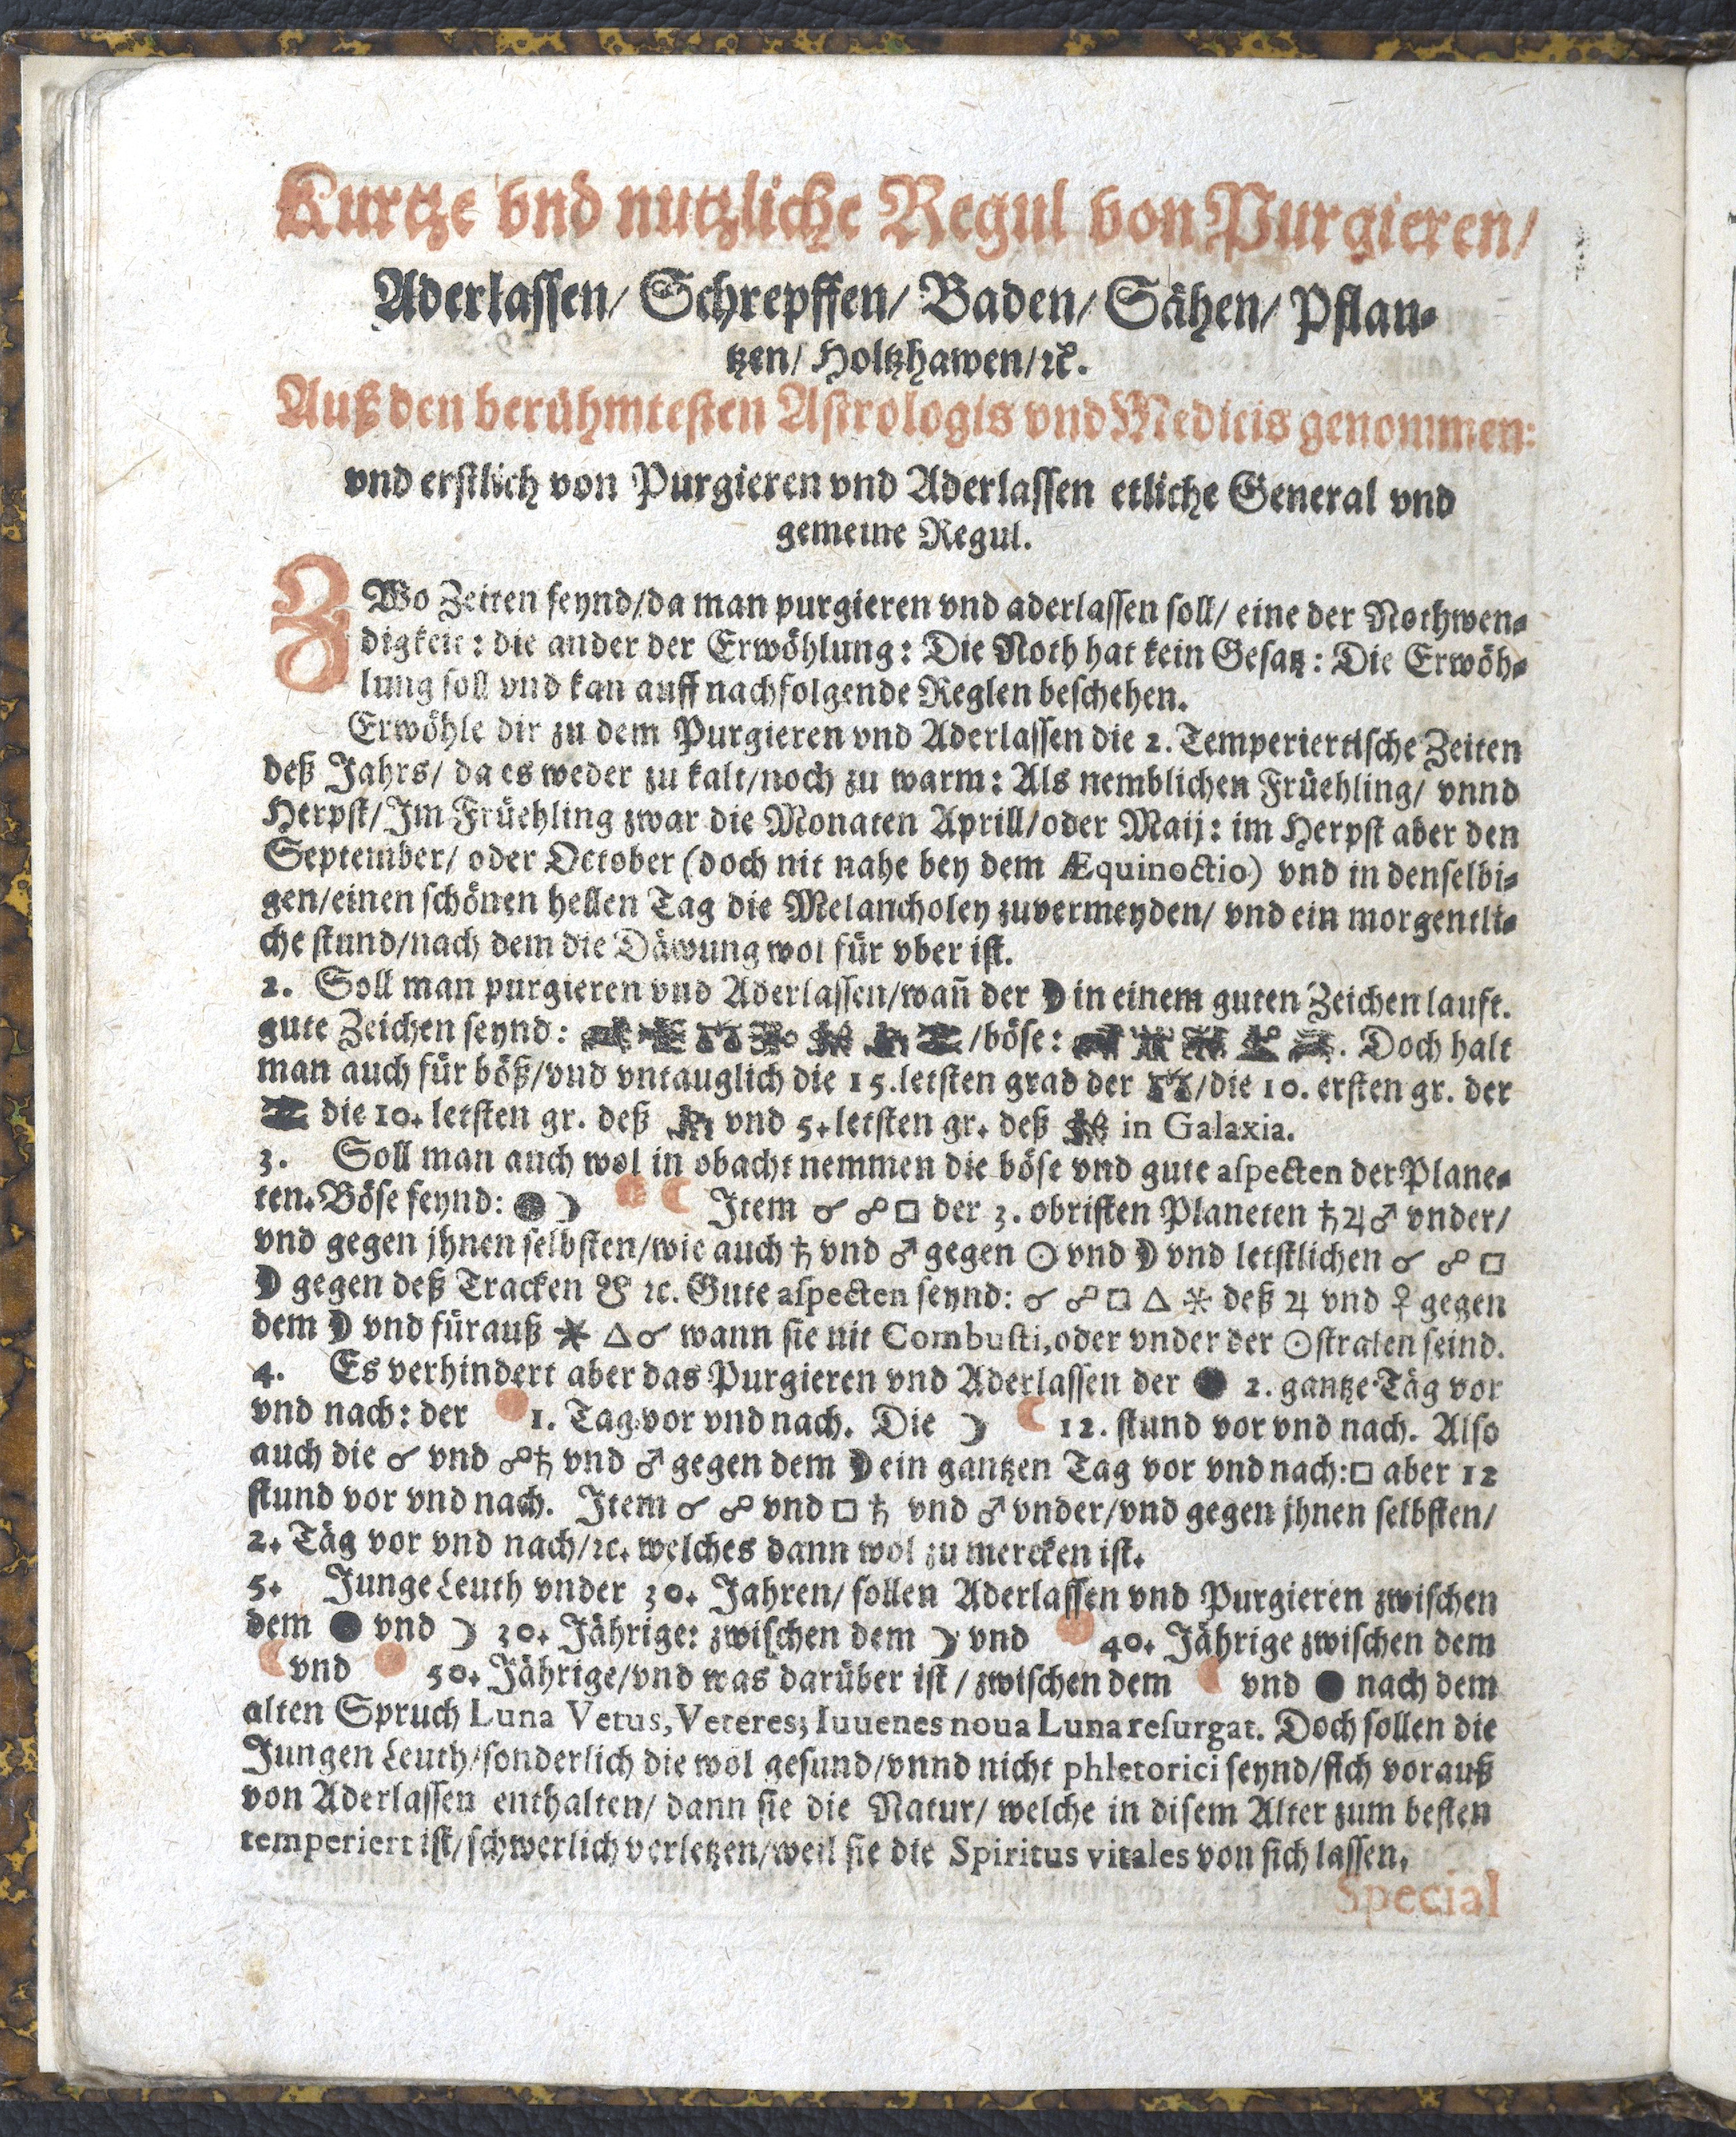 Kurtze vnd nutzliche Regul von Purgieren/
Aderlassen/ Schrepffen/ Baden/ Sähen/ Pflan-
tzen/ Holtzhawen/ ꝛc.
Auß den berühmtesten Astrologis vnd Medicis genommen:
vnd erstlich von Purgieren vnd Aderlassen etliche General vnd
gemeine Regul.
ZWo Zeiten seynd/da man purgieren vnd aderlassen soll/ eine der Nothwen-
digkeit: die ander der Erwöhlung: Die Noth hat kein Gesatz: Die Erwöh-
lung soll vnd kan auff nachfolgende Reglen beschehen.
Erwöhle dir zu dem Purgieren vnd Aderlassen die 2. Temperiertische Zeiten
deß Jahrs/ da es weder zu kalt/noch zu warm: Als nemblichen Früehling/ vnnd
Herpst/Im Früehling zwar die Monaten Aprill/oder Maij: im Herpst aber den
September/ oder October (doch nit nahe bey dem Æquinoctio) vnd in denselbi-
gen/einen schönen hellen Tag die Melancholey zuvermeyden/ vnd ein morgentli-
che stund/nach dem die Däwung wol für vber ist.
2. Soll man purgieren vnd Aderlassen/wañ der ☽ in einem guten Zeichen lauft.
gute Zeichen seynd: /böse: . Doch halt
man auch für böß/vnd vntauglich die 15.letsten grad der /die 10. ersten gr. der
die 10. letsten gr. deß vnd 5. letsten gr. deß in Galaxia.
3. Soll man auch wol in obacht nemmen die böse vnd gute aspecten der Plane-
ten. Böse seynd: ● ☽ ● ☾ Item ☌ ☍ □ der 3. obristen Planeten ♄ ♃ ♂ vnder/
vnd gegen jhnen selbsten/wie auch ♄ vnd ♂ gegen ☉ vnd ☽ vnd letstlichen ☌ ☍ □
☽ gegen deß Tracken ☋ ꝛc. Gute aspecten seynd: ☌ ☍ □ △ ⚹ deß ♃ vnd ♀ gegen
dem ☽ vnd fürauß ⚹ △ ☌ wann sie nit Combusti, oder vnder der ☉ stralen seind.
4. Es verhindert aber das Purgieren vnd Aderlassen der ● 2. gantze Täg vor
vnd nach: der ● 1. Tag vor vnd nach. Die ☽ ☾ 12. stund vor vnd nach. Also
auch die ☌ vnd ☍ ♄ vnd ♂ gegen dem ☽ ein gantzen Tag vor vnd nach: □ aber 12
stund vor vnd nach. Item ☌ ☍ vnd □ ♄ vnd ♂ vnder/vnd gegen jhnen selbsten/
2. Täg vor vnd nach/ꝛc. welches dann wol zu mercken ist.
5. Junge Leuth vnder 30. Jahren/ sollen Aderlassen vnd Purgieren zwischen
dem ● vnd ☽ 30. Jährige: zwischen dem ☽ vnd ● 40. Jährige zwischen dem
☾ vnd ● 50. Jährige/vnd was darüber ist / zwischen dem ☾ vnd ● nach dem
alten Spruch Luna Vetus, Veteres; Iuuenes noua Luna resurgat. Doch sollen die
Jungen Leuth/sonderlich die wol gesund/vnnd nicht phletorici seynd/sich vorauß
von Aderlassen enthalten/ dann sie die Natur/ welche in disem Alter zum besten
temperiert ist/schwerlich verletzen/weil sie die Spiritus vitales von sich lassen.
Special